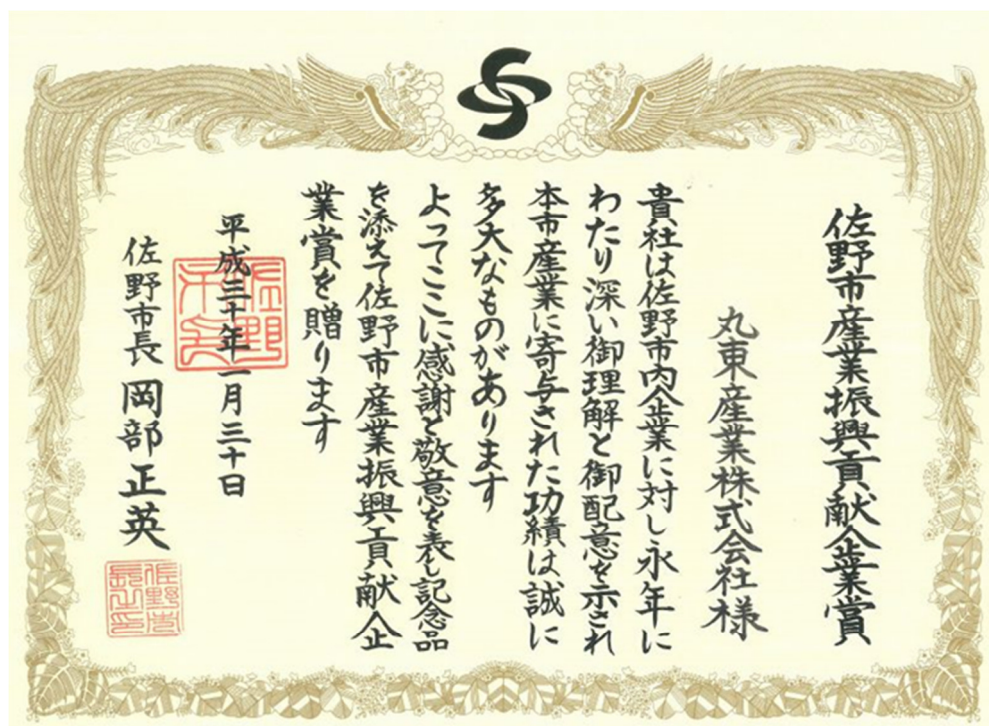 佐野市産業振興貢献企業賞
丸東産業株式会社様
貴社は佐野市内企業に対し永年に
わたり深い御理解と御配意を示され
本市産業に寄与された功績は誠に
多大なものがあります
よってここに感謝と敬意を表し記念品
を添えて佐野市産業振興貢献企
業賞を贈ります
平成二十年一月三十日
佐野市長 岡部正英